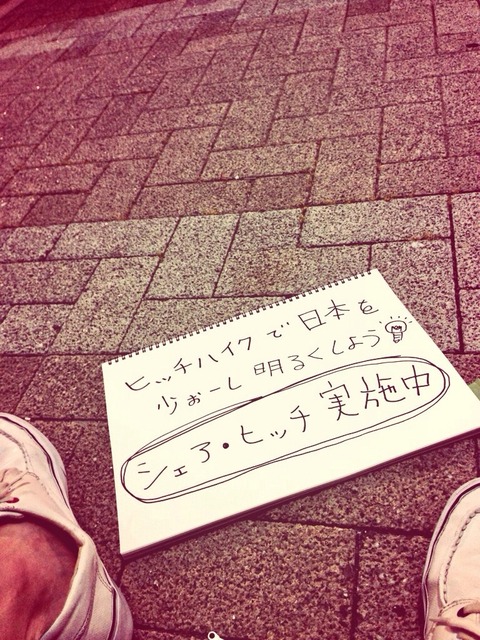 ヒッチハイクで日本を
少ぉーし明るくしよう
シェア・ヒッチ実施中